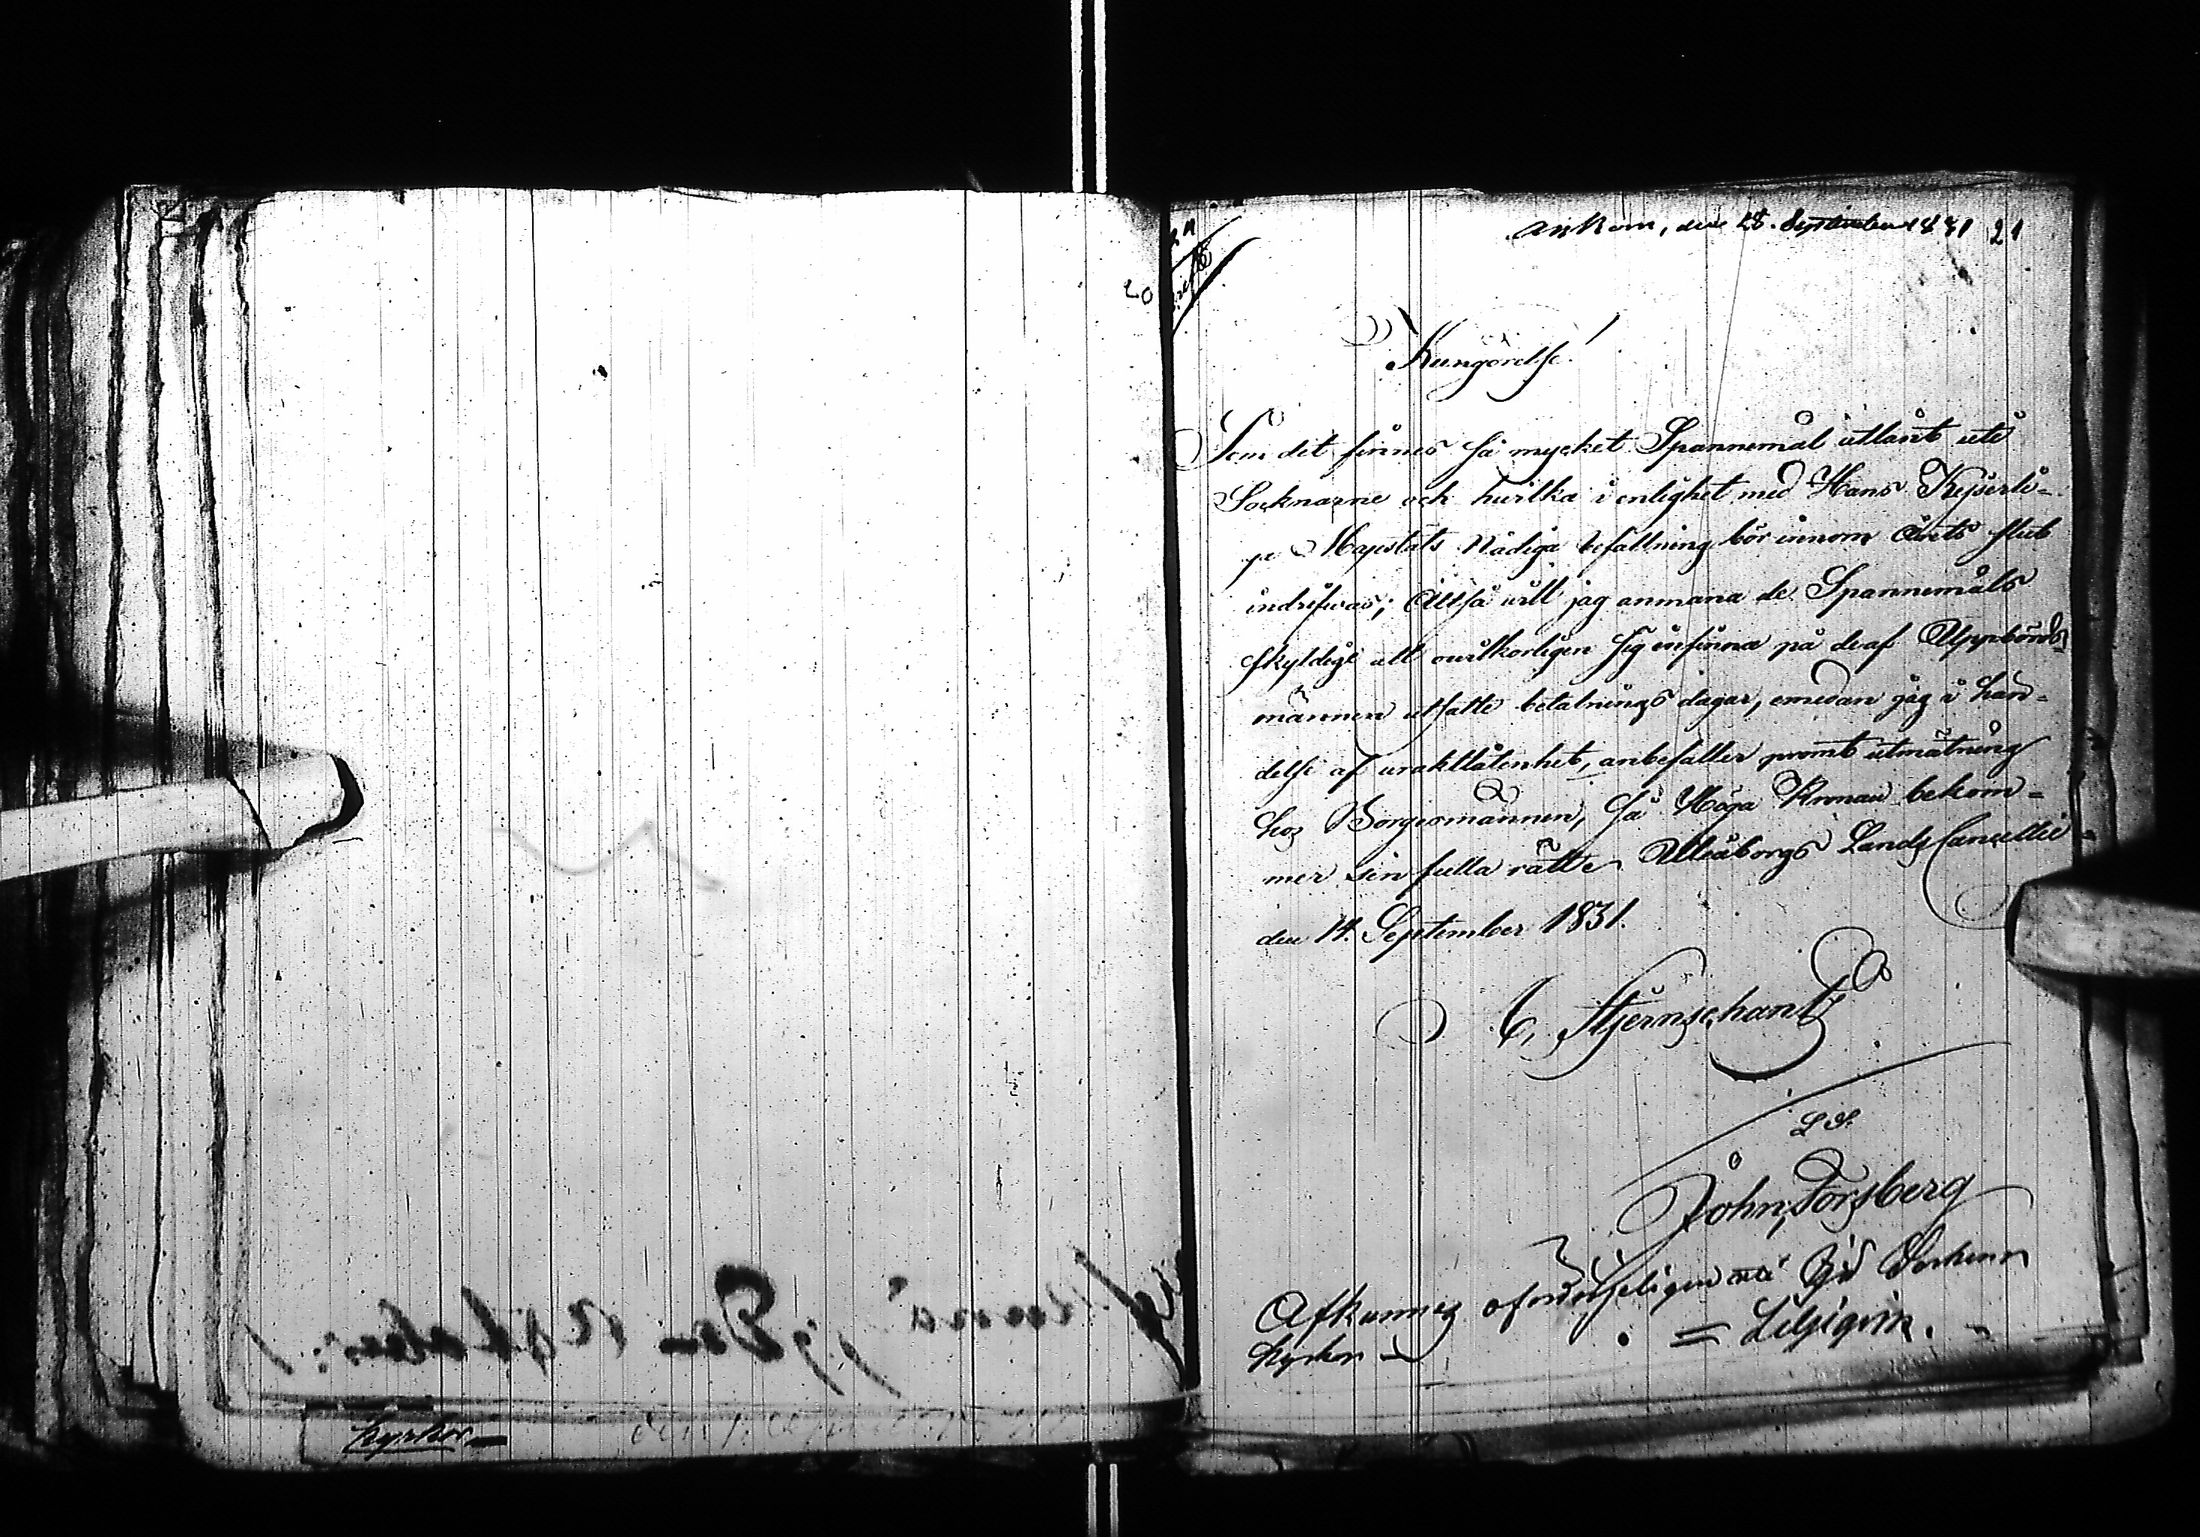 Ankom, den 28. September 1831 21
20
Kungörelse!
Som det finnes så mycket Spannemål utlånt ute
Socknarne och hvilka i enlighet med Hans Kejserli=
ga Majestäts Nådiga befallning bör innom Årets slut
indrifwas; Altså will jag anmana de Spannemåls
skyldige att owilkorligen sig infinna på de af Uppbörds
männen utsatte betalnings dagar, emedan jag i hän=
delse af uraktlåtenhet, anbefaller promt utmätning
hos Borgesmännen, så Höga Kronan bekom=
mer sin fulla rätt. Uleåborgs Lands Cancellie
den 14. September 1831.
C, Stjernschantz
LS.
John, Forsberg
Afkunnas ofördröjeligen
Kyrkor
Liljiqvin.
Kyrkor